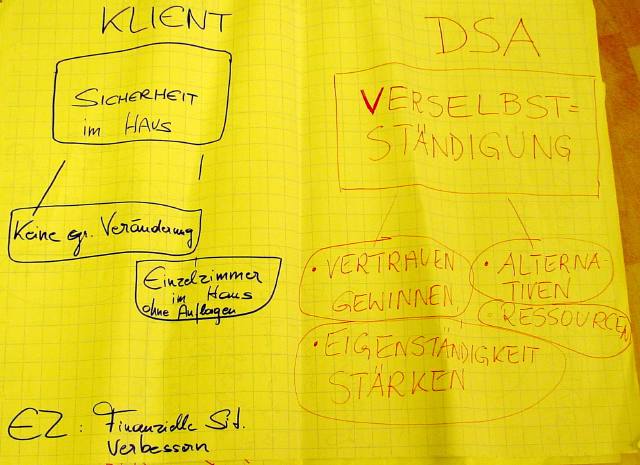 KLIENT
SICHERHEIT
im HAUS
Keine gr. Veränderung
Einzelzimmer
im Haus
ohne Auflagen
EZ: Finanzielle Sit.
Verbessern
DSA
VERSELBST=
STÄNDIGUNG
• VERTRAUEN
GEWINNEN
• ALTERNA-
TIVEN
• RESSOURCEN
• EIGENSTÄNDIGKEIT
STÄRKEN